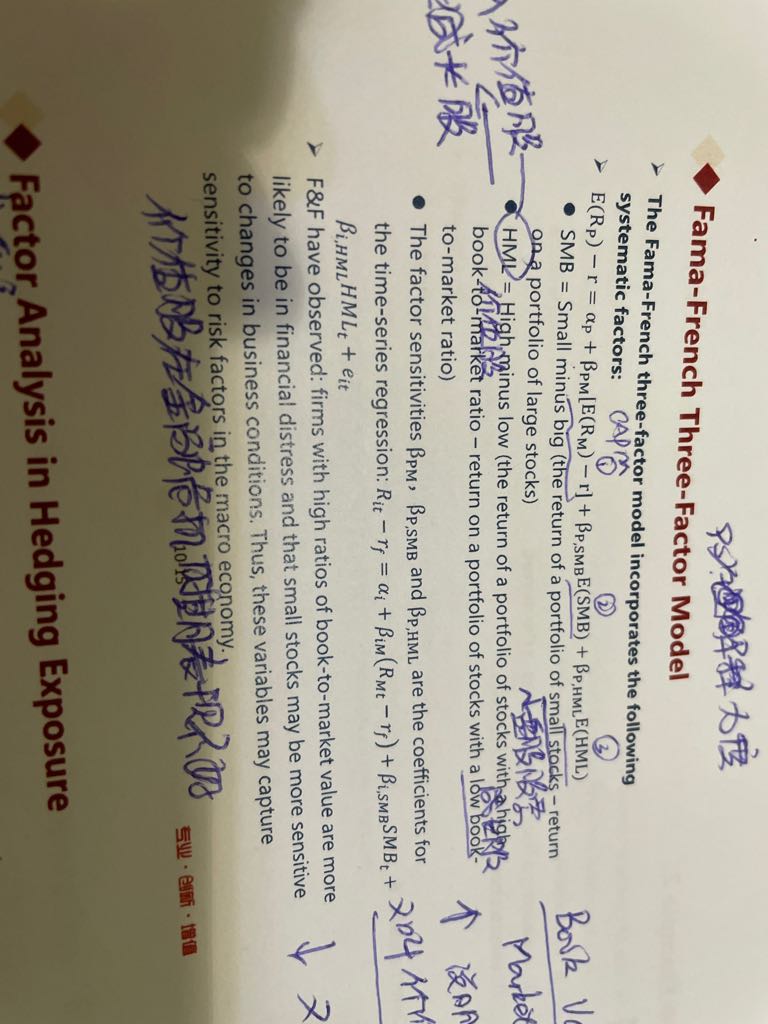 价值股
成长股
Fama-French Three-Factor Model
The Fama-French three-factor model incorporates the following
systematic factors:
CAPM
① ② ③
E(R_P) − r = α_P + β_PM[E(R_M) − r] + β_P,SMB E(SMB) + β_P,HML E(HML)
SMB = Small minus big (the return of a portfolio of small stocks – return
on a portfolio of large stocks)
HML = High minus low (the return of a portfolio of stocks with a high
book-to-market ratio – return on a portfolio of stocks with a low book-
to-market ratio)
价值股
Book
Market
The factor sensitivities β_PM, β_P,SMB and β_P,HML are the coefficients for
the time-series regression: R_it − r_f = α_i + β_iM(R_Mt − r_f) + β_i,SMB SMB_t +
β_i,HML HML_t + e_it
F&F have observed: firms with high ratios of book-to-market value are more
likely to be in financial distress and that small stocks may be more sensitive
to changes in business conditions. Thus, these variables may capture
sensitivity to risk factors in the macro economy.
价值股在金融危机
专业·创新·增值
Factor Analysis in Hedging Exposure